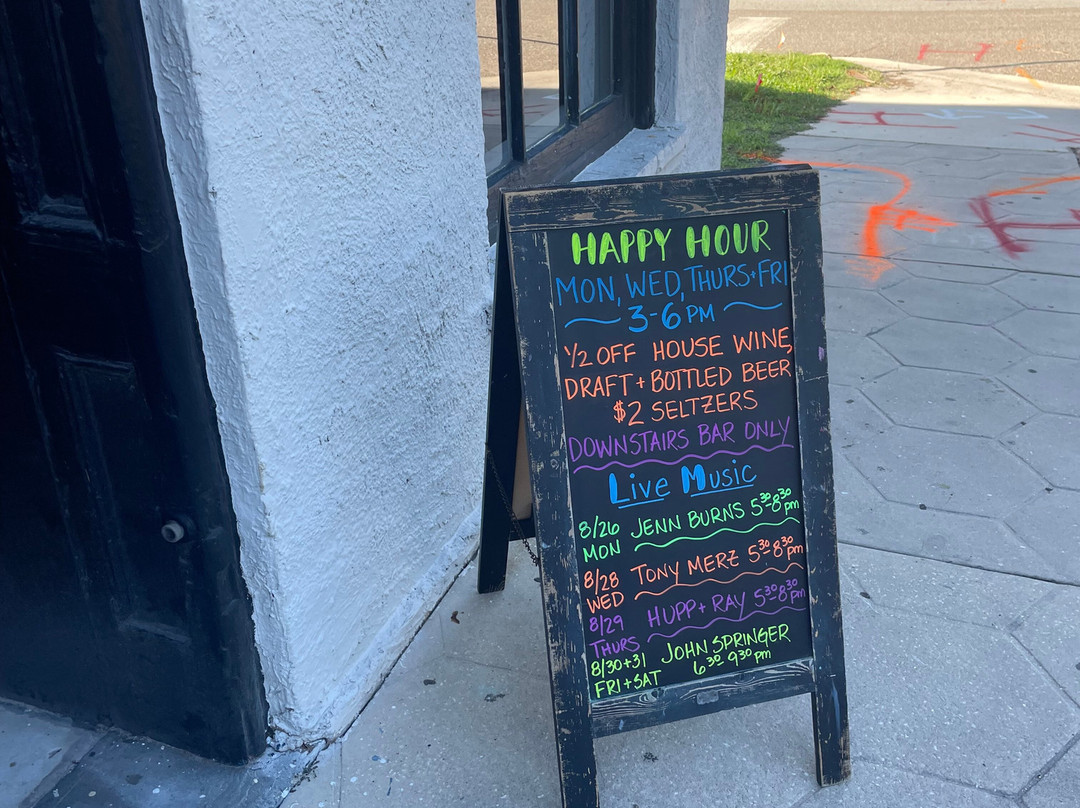 HAPPY HOUR
MON, WED, THURS+FRI
3-6 PM
1/2 OFF HOUSE WINE,
DRAFT + BOTTLED BEER
$2 SELTZERS
DOWNSTAIRS BAR ONLY
Live Music
8/26 MON JENN BURNS 5:30-8:30 pm
8/28 WED TONY MERZ 5:30-8:30 pm
8/29 THURS HUPP + RAY 5:30-8:30 pm
8/30+31 FRI+SAT JOHN SPRINGER 6:30 9:30 pm